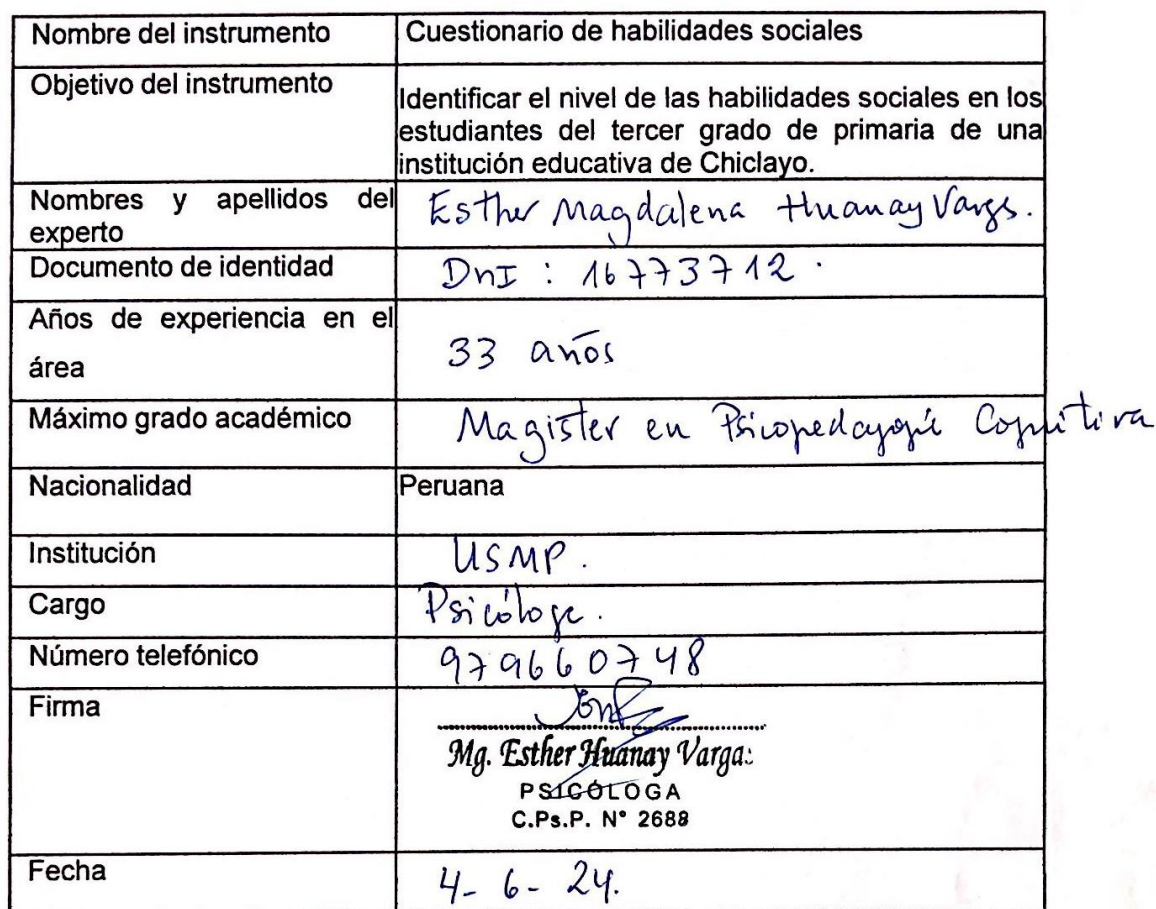 Nombre del instrumento Cuestionario de habilidades sociales
Objetivo del instrumento
Identificar el nivel de las habilidades sociales en los
estudiantes del tercer grado de primaria de una
institución educativa de Chiclayo.
Nombres y apellidos del
experto
Esther Magdalena Huanay Vargs.
Documento de identidad DnI : 16773712.
Años de experiencia en el
área
33 años
Máximo grado académico Magister en Psicopedagogía Cognitiva
Nacionalidad Peruana
Institución USMP.
Cargo Psicóloga.
Número telefónico 979660748
Firma
Mg. Esther Huanay Vargas
PSICÓLOGA
C.Ps.P. N° 2688
Fecha 4-6-24.